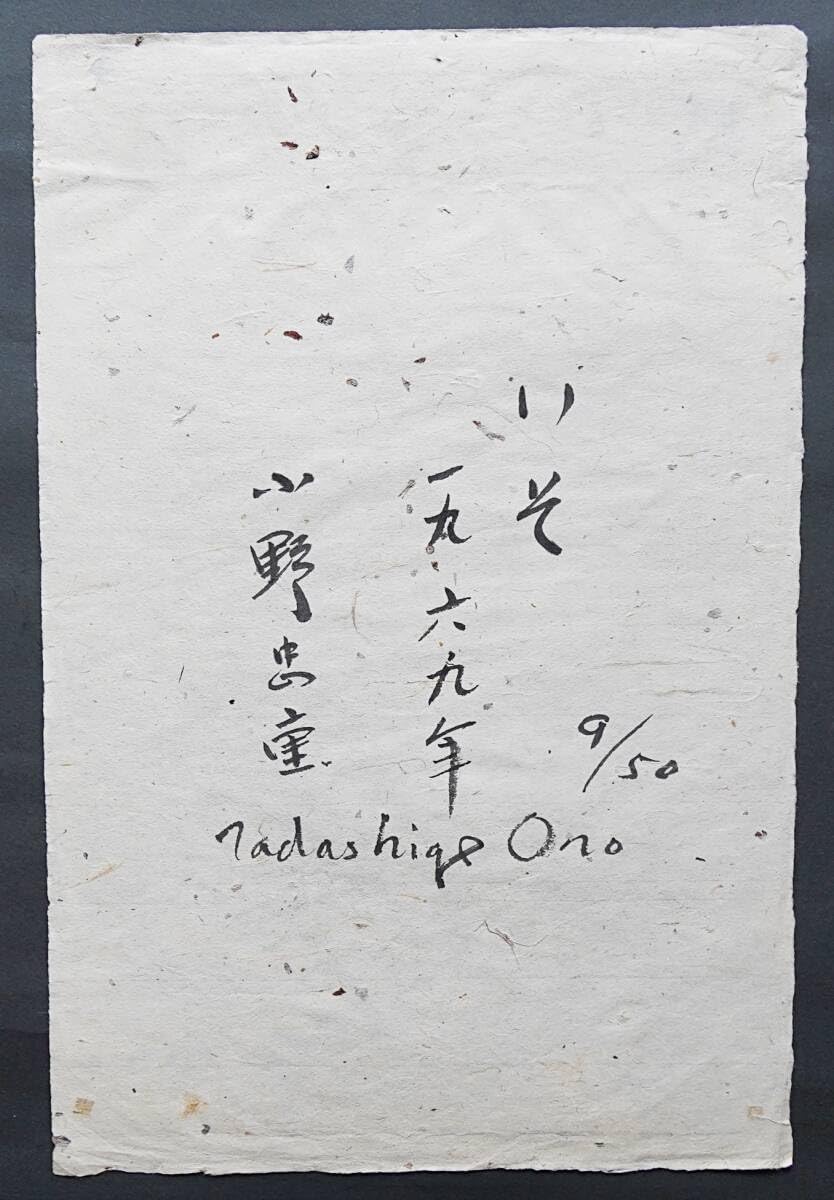 いそ
9/50
一九六九年
小野忠重
Tadashige Ono